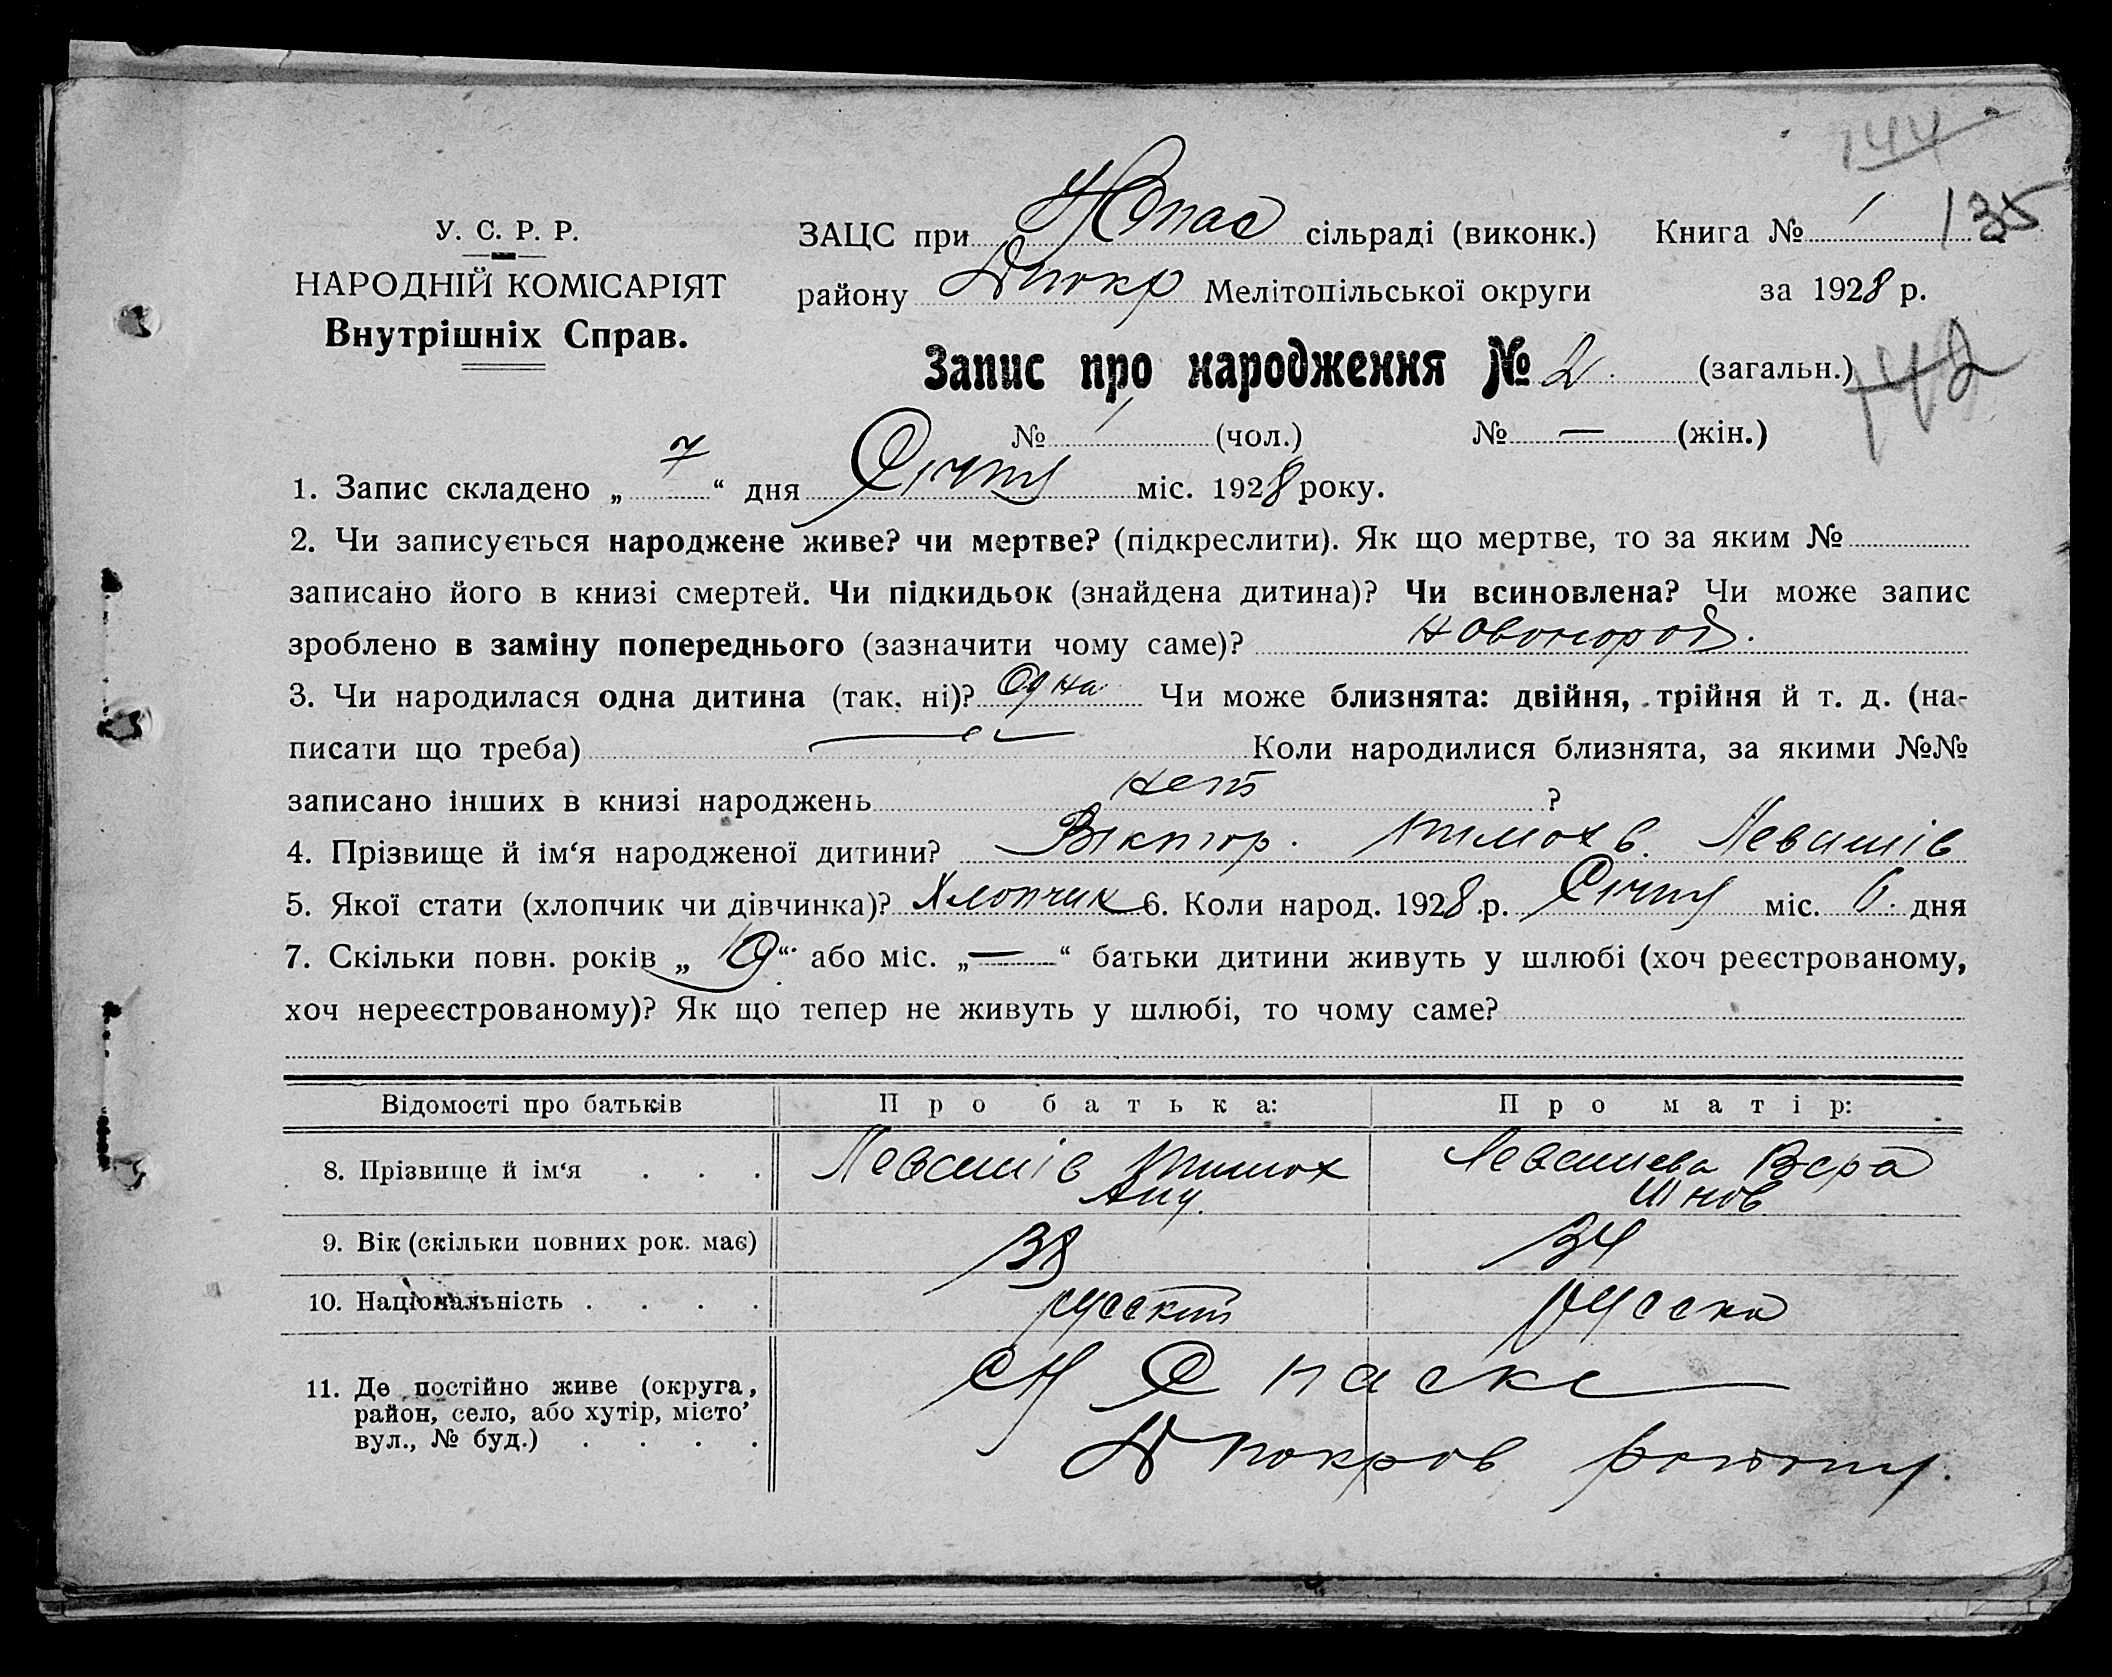 144
У. С. Р. Р.
НАРОДНІЙ КОМІСАРІЯТ
Внутрішніх Справ.
ЗАЦС при сільраді (виконк.) Книга № 1 135
району Мелітопільської округи за 1928 р.
Запис про народження № 2 (загальн.) 142
№ 1 (чол.) № — (жін.)
1. Запис складено „ 7 “ дня Січня міс. 1928 року.
2. Чи записується народжене живе? чи мертве? (підкреслити). Як що мертве, то за яким №
записано його в книзі смертей. Чи підкидьок (знайдена дитина)? Чи всиновлена? Чи може запис
зроблено в заміну попереднього (зазначити чому саме)? новонород.
3. Чи народилася одна дитина (так, ні)? Одна Чи може близнята: двійня, трійня й т. д. (на-
писати що треба) Коли народилися близнята, за якими №№
записано інших в книзі народжень нет ?
4. Прізвище й ім‘я народженої дитини? Віктор. Тимох в. Левашів
5. Якої стати (хлопчик чи дівчинка)? Хлопчик 6. Коли народ. 1928 р. Січня міс. 6. дня
7. Скільки повн. років „ 19 “ або міс. „ — “ батьки дитини живуть у шлюбі (хоч реєстрованому,
хоч нереєстрованому)? Як що тепер не живуть у шлюбі, то чому саме?
Відомості про батьків Про батька: Про матір:
8. Прізвище й ім‘я . . . Левашів Тимох Левашева Вера
9. Вік (скільки повних рок. має) 38 34
10. Національність . . . . русский русска
11. Де постійно живе (округа,
район, село, або хутір, місто’
вул., № буд.) . . . .
Спаске
Покров району.